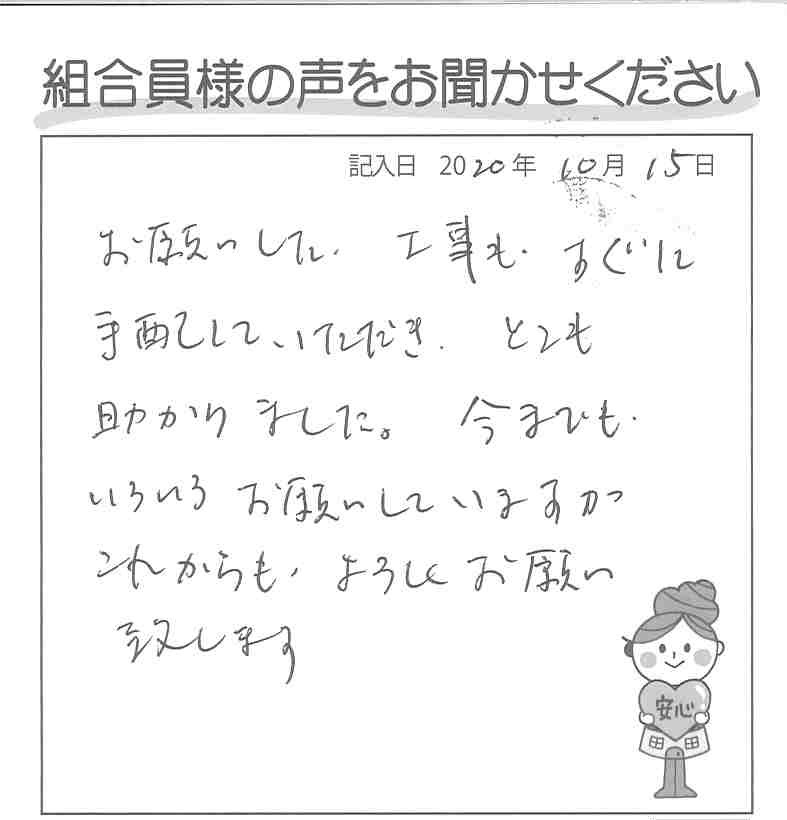 組合員様の声をお聞かせください
記入日 2020年 10月 15日
お願いした、工事も、すぐに
手配していただき、とても
助かりました。今までも、
いろいろお願いしていますが
これからも、よろしくお願い
致します
安心